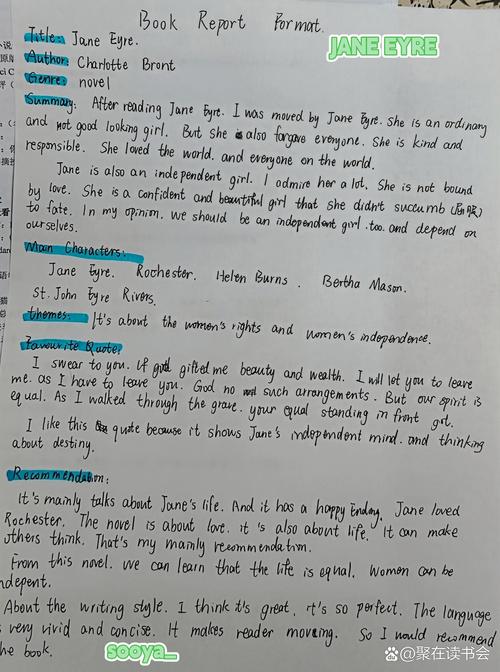 Book Report Format.
JANE EYRE
Title: Jane Eyre.
Author: Charlotte Bront
Genre: novel
Summary: After reading Jane Eyre. I was moved by Jane Eyre. She is an ordinary
and not good looking girl. But she is also forgave everyone. She is kind and
responsible. She loved the world. and everyone on the world.
Jane is also an independent girl. I admire her a lot. She is not bound
by love. She is a confident and beautiful girl that she didn't succumb (屈服)
to fate. In my opinion. we should be an independent girl. too. and depend on
ourselves.
Main Characters:
Jane Eyre. Rochester. Helen Burns. Bertha Mason.
St. John Eyre Rivers.
themes: It's about the women's rights and women's independence.
Favourite Quote:
I swear to you. if god gifted me beauty and wealth. I will let you to leave
me. as I have to leave you. God no such arrangements. But our spirit is
equal. As I walked through the grave. your equal standing in front
I like this quote because it shows Jane's independent mind. and thinking
about destiny.
Recommendation:
It's mainly talks about Jane's life. And it has a happy Ending. Jane loved
Rochester. The novel is about love. it's also about life. It can make
others think. That's my mainly recommendation.
From this novel. we can learn that the life is equal. Women can be
ndepent.
About the writing style. I think it's great. it's so perfect. The language
s very vivid and concise. It makes reader moving. So I would recommend
he book.
sooya_
@聚在读书会